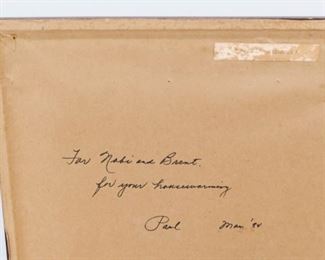 For Nobi and Brent.
for your housewarming
Paul